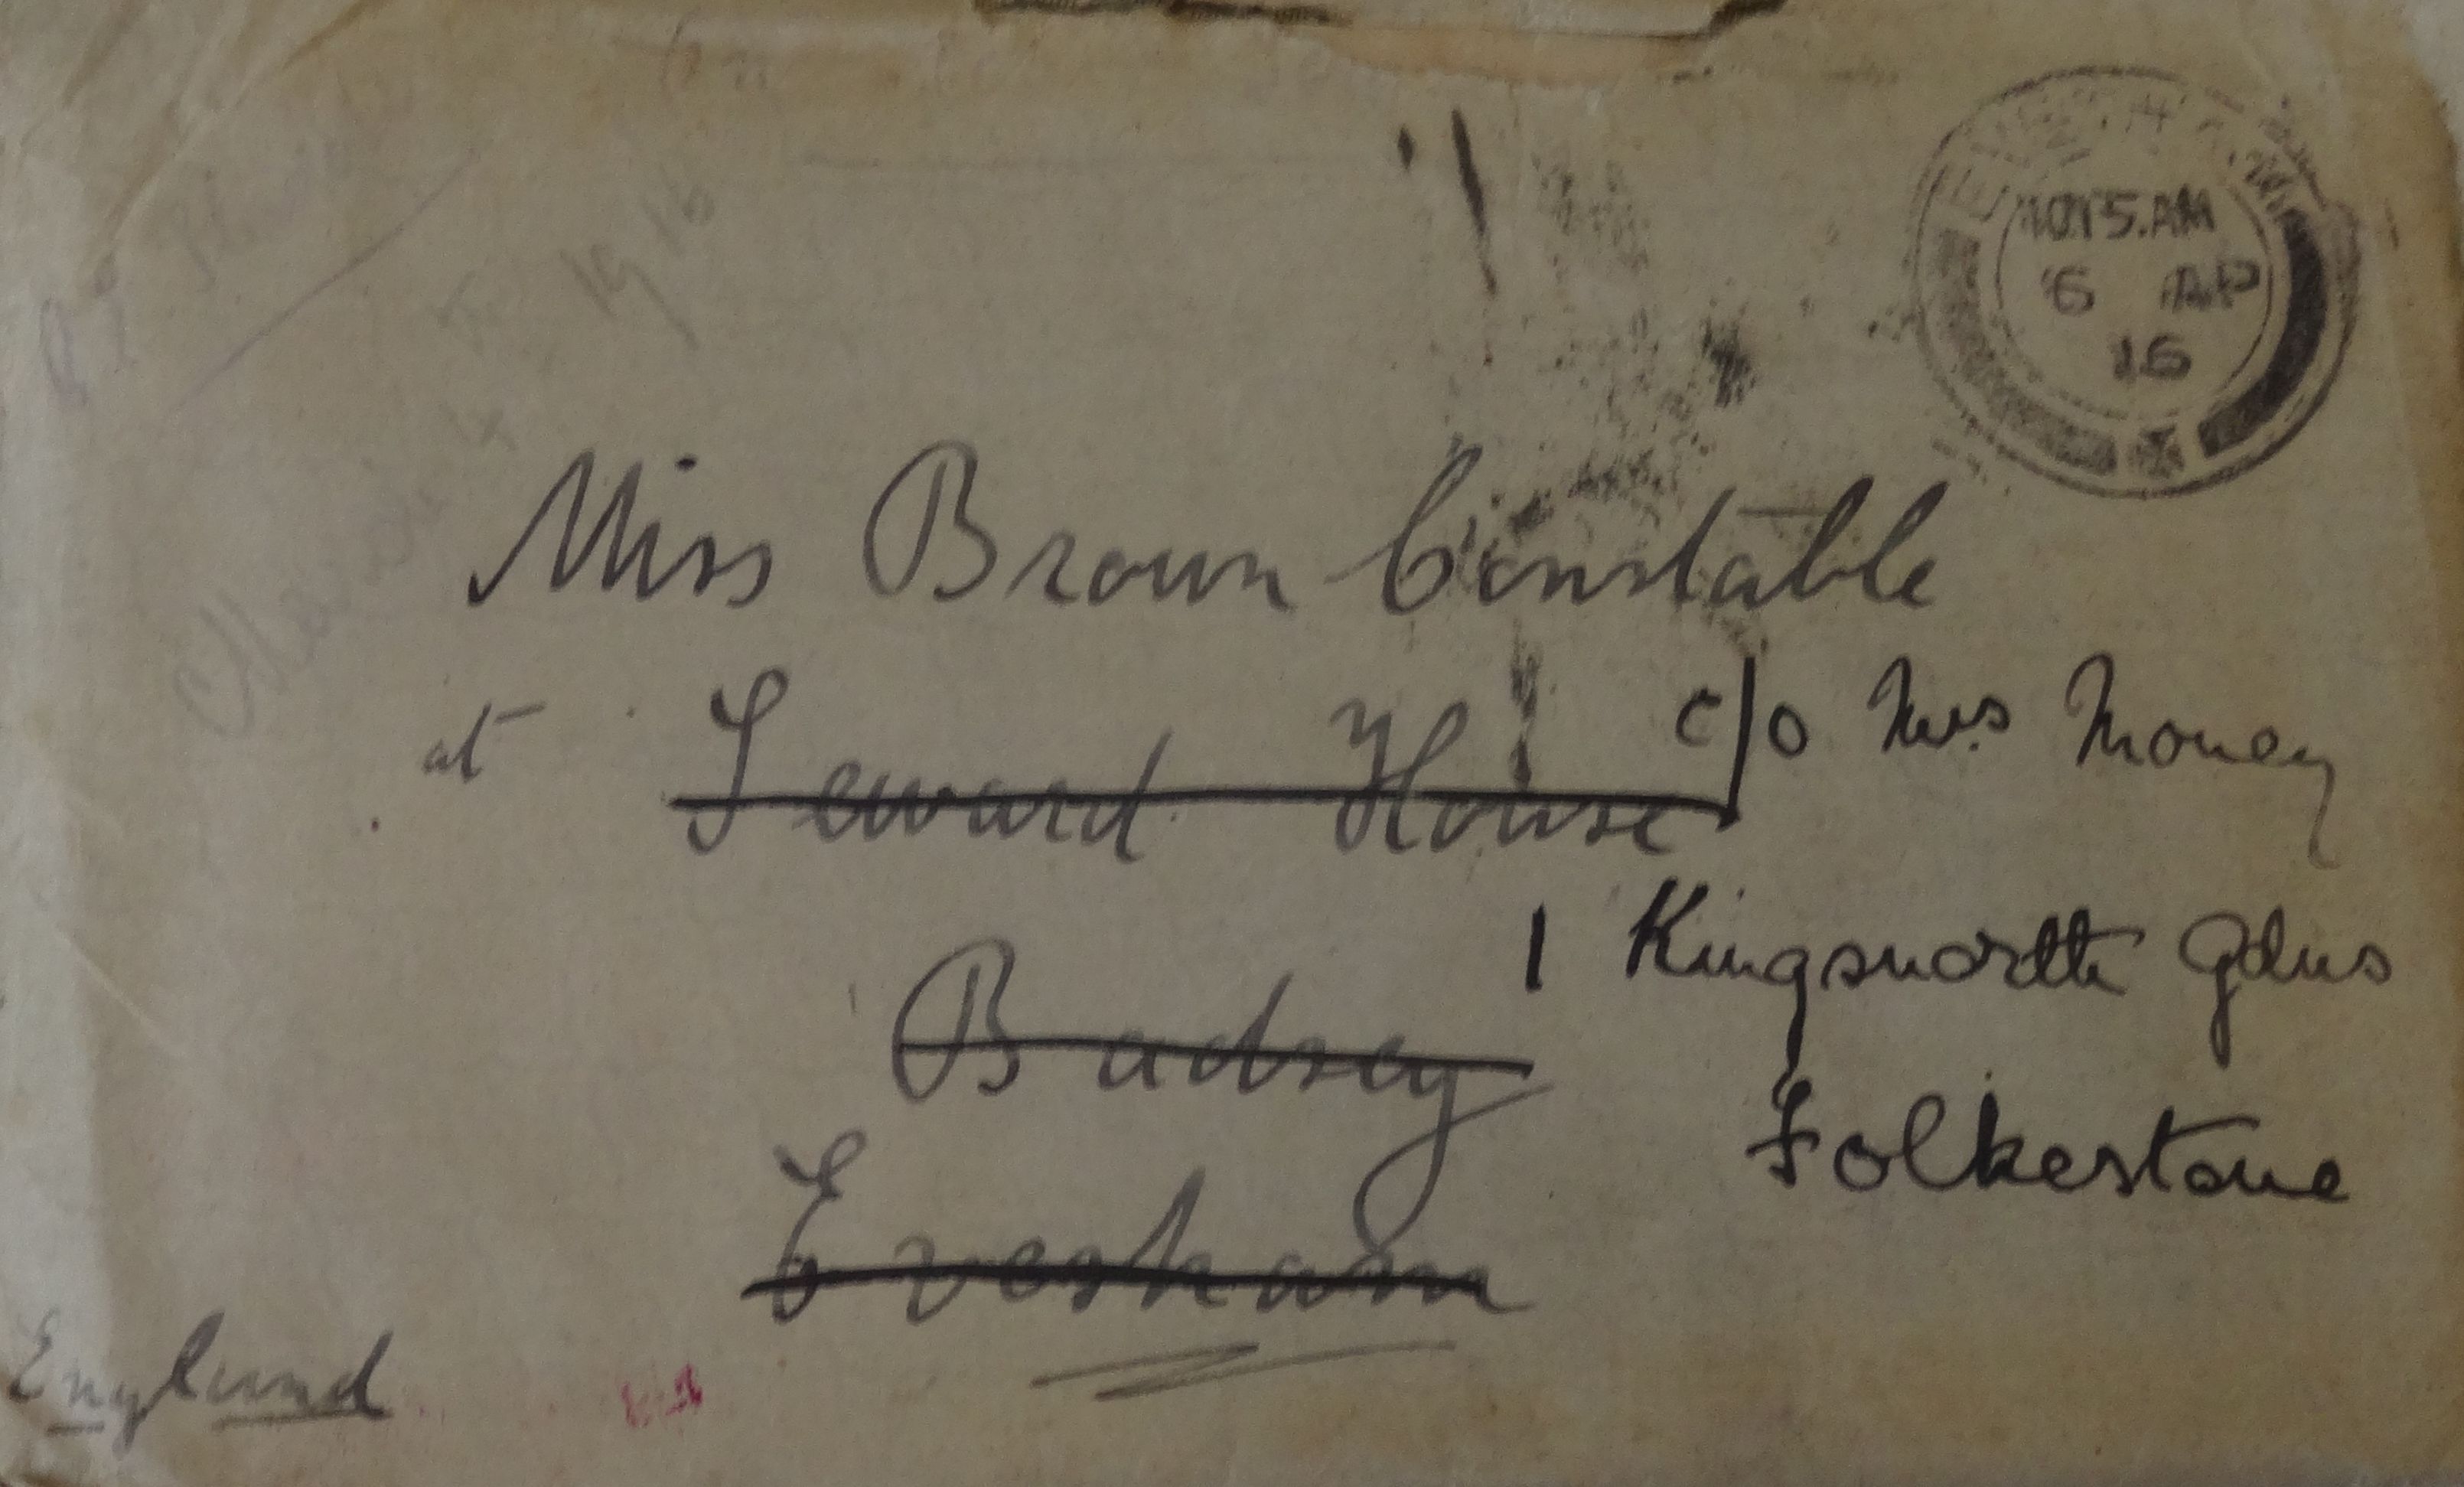 10.15.AM
6 AP
16
1916
March
Miss Brown Constable
at Seward House
c/o Mrs Money
1 Kingsnorth Gdns
Badsey
Folkestone
Evesham
England